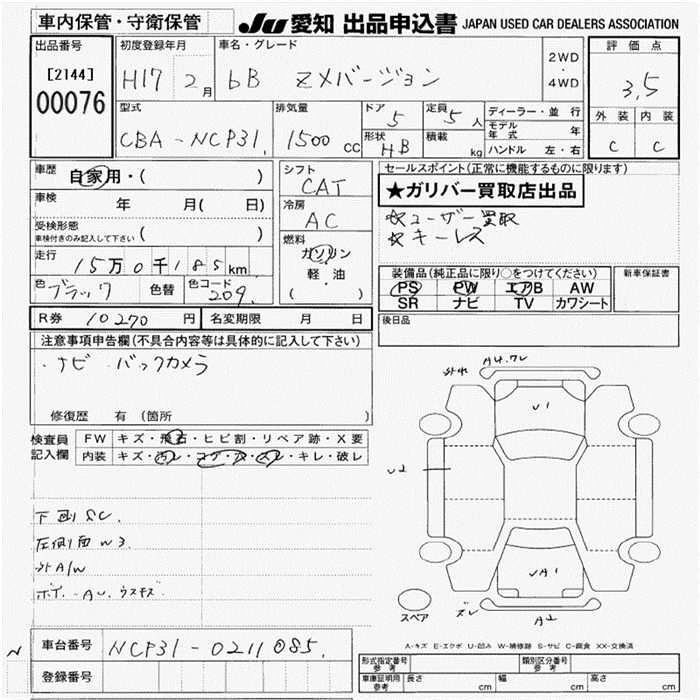 車内保管・守衛保管
JU 愛知 出品申込書 JAPAN USED CAR DEALERS ASSOCIATION
出品番号
[2144]
00076
初度登録年月
H17 2月
車名・グレード
bB ZXバージョン
2WD
・
4WD
評価点
3.5
外装 内装
C C
型式
CBA-NCP31.
排気量
1500 cc
ドア
5
定員
5人
形状
HB
積載
kg
ディーラー・並行
モデル年式 年
ハンドル 左・右
車歴
自家用・( )
車検
年 月( 日)
受検形態
車検付きのみ記入して下さい ( )
走行
15万0千185km
色 ブラック 色替 色コード 209.
シフト
CAT
冷房
AC
燃料
ガソリン
軽・油
( )
セールスポイント(正常に機能するものに限ります)
★ガリバー買取店出品
☆ユーザー買取
☆キーレス
装備品(純正品に限り○をつけてください)
PS PW エアB AW
SR ナビ TV カワシート
新車保証書
後日品
R券 10270 円
名変期限 月 日
注意事項申告欄(不具合内容等は具体的に記入して下さい)
・ナビ ・バックカメラ
修復歴 有 (箇所 )
検査員
記入欄
FW キズ・飛石・ヒビ割・リペア跡・X要
内装 キズ・汚レ・コゲ・穴・スレ・キレ・破レ
下回りSC.
左側面W3
外A/W
ボディ-AU.ウスキズ
A4.ワレ
U1
U2
UA1
ズレ A2
スペア
A-キズ E-エクボ U-凹み W-補修跡 S-サビ C-腐食 XX-交換済
車台番号 NCP31-0211085.
登録番号
形式指定番号
参考
類別区分番号
参考
車庫証明用
参考
長さ cm 幅 cm 高さ cm